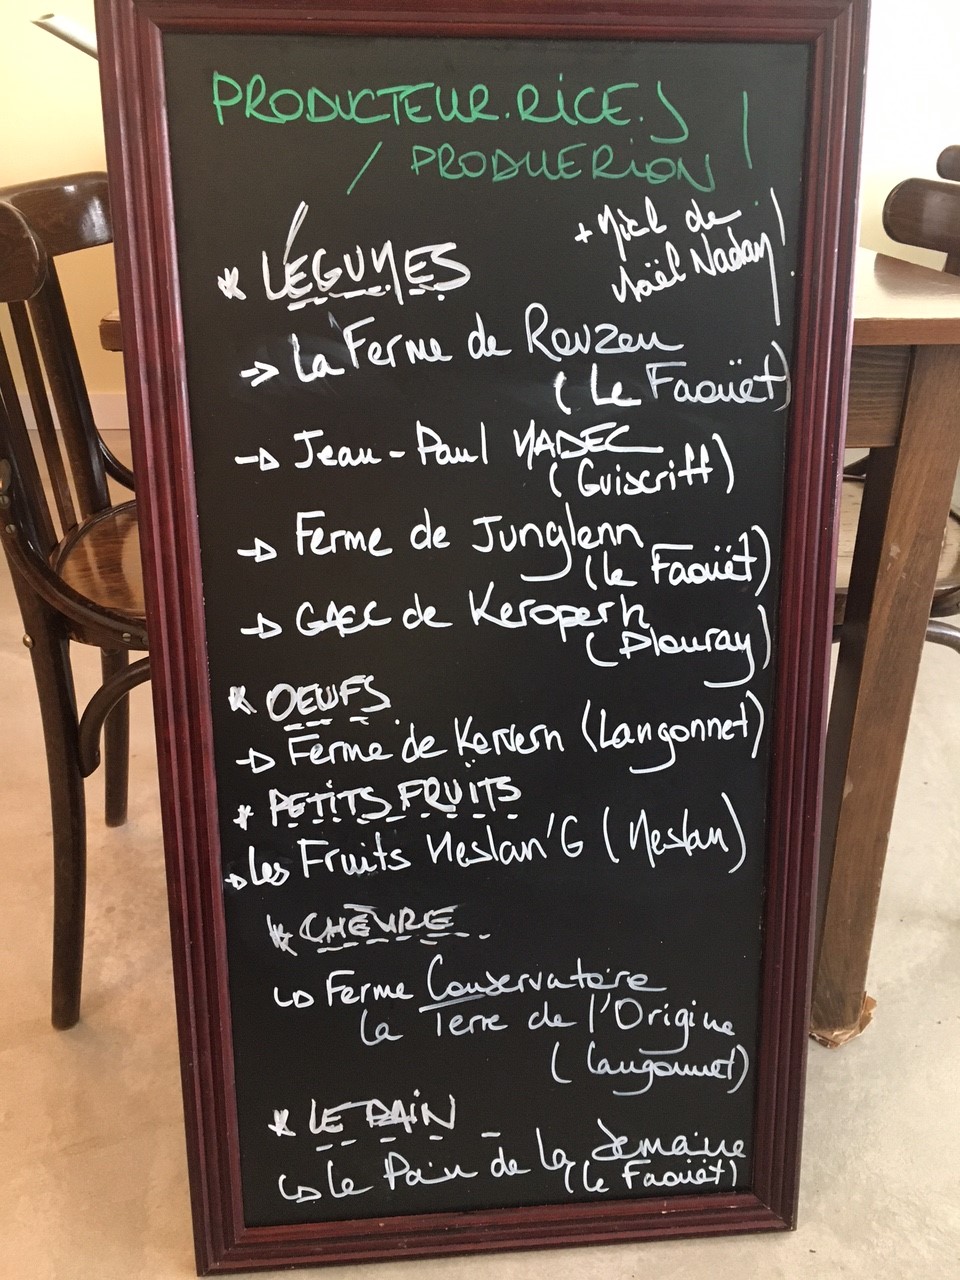 PRODUCTEUR.RICE.S
/ PRODUERION !
+ Miel de
Noël Nadan !
* LÉGUMES
→ La Ferme de Rouzen
(Le Faouët)
→ Jean-Paul MADEC
(Guiscriff)
→ Ferme de Junglenn
(le Faouët)
→ GAEC de Keroperh
(Plouray)
* OEUFS
→ Ferme de Kervern (Langonnet)
* PETITS FRUITS
→ Les Fruits Meslan'G (Meslan)
* CHÈVRE
↳ Ferme Conservatoire
La Terre de l'Origine
(Langonnet)
* LE PAIN
↳ Le Pain de la Semaine
(le Faouët)